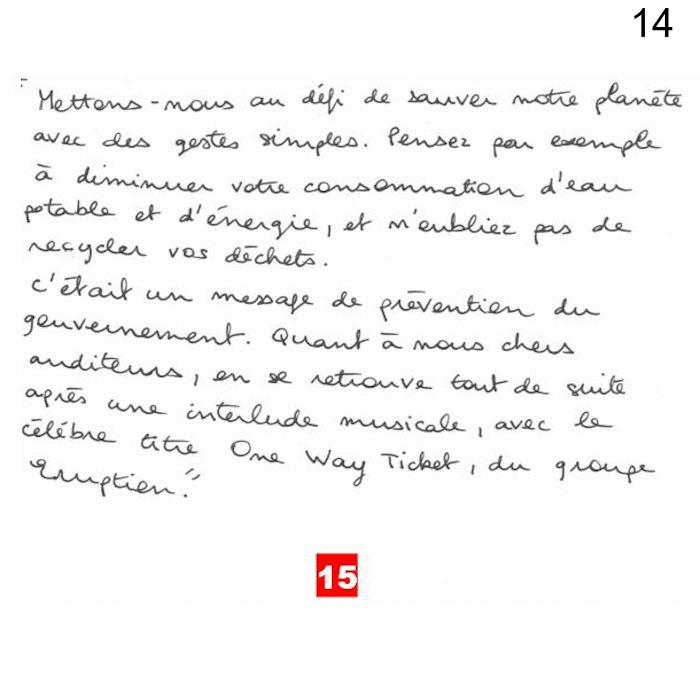 14
Mettons-nous au défi de sauver notre planète
avec des gestes simples. Pensez par exemple
à diminuer votre consommation d'eau
potable et d'énergie, et n'oubliez pas de
recycler vos déchets.
C'était un message de prévention du
gouvernement. Quant à nous chers
auditeurs, on se retrouve tout de suite
après une interlude musicale, avec le
célèbre titre One Way Ticket, du groupe
Eruption."
15